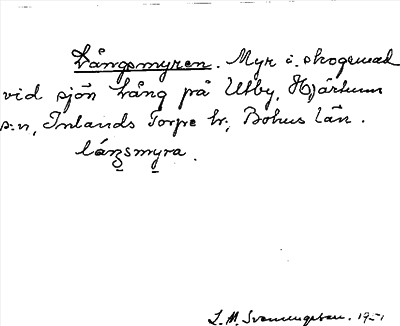 Långsmyren. Myr i skogsmad
vid sjön Lång på Utby, Hjärtum
s:n, Inlands Torpe hr, Bohus län.
låŋsmyra.
L. M. Svenungsson. 1951